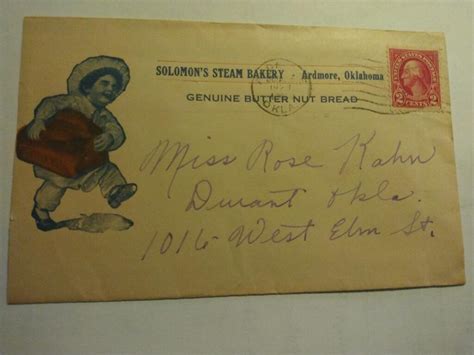 SOLOMON'S STEAM BAKERY - Ardmore, Oklahoma
GENUINE BUTTER NUT BREAD
OKLA
2 CENTS 2
Miss Rose Kahn
Durant Okla.
1016 West Elm St.